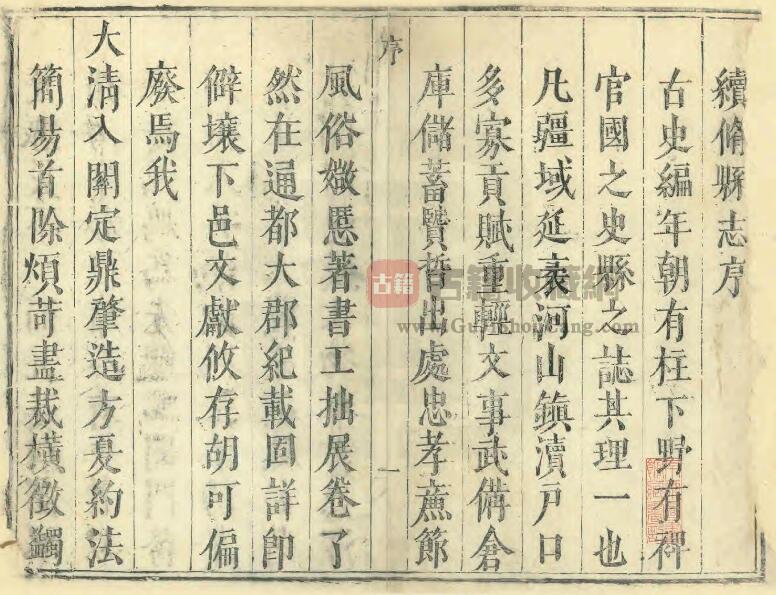 續脩縣志序
古史編年朝有柱下野有稗
官國之史縣之誌其理一也
凡疆域延袤河山鎮瀆戸口
多寡貢賦重輕文事武備倉
庫儲蓄賢哲出處忠孝亷節
序
一
風俗媺慝著書工拙展卷了
然在通都大郡紀載固詳卽
僻壤下邑文獻攸存胡可偏
廢焉我
大淸入關定鼎肇造方夏約法
簡易首除煩苛盡裁橫徵蠲
古籍
古籍收藏網
www.GuJiShouCang.com